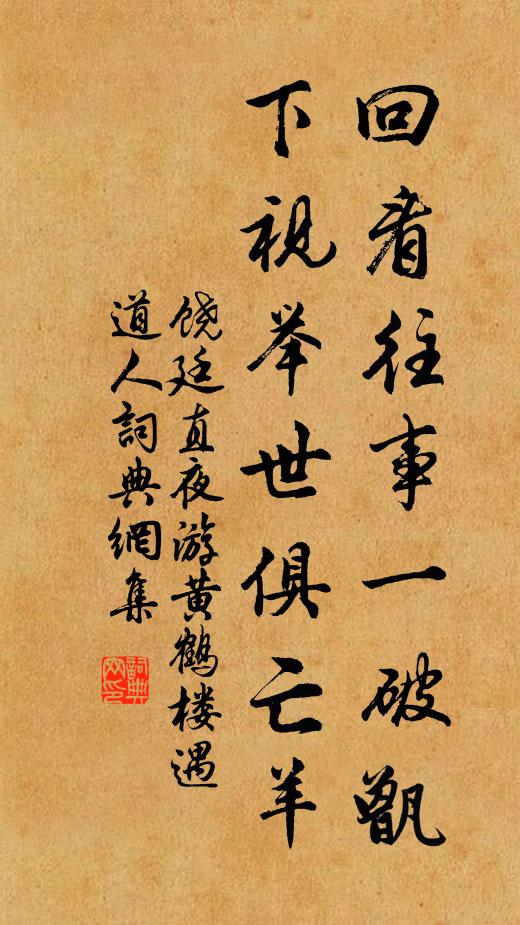 回看往事一破甑
下视举世俱亡羊
饶廷直夜游黄鹤楼遇
道人詞典網集
詞典网印